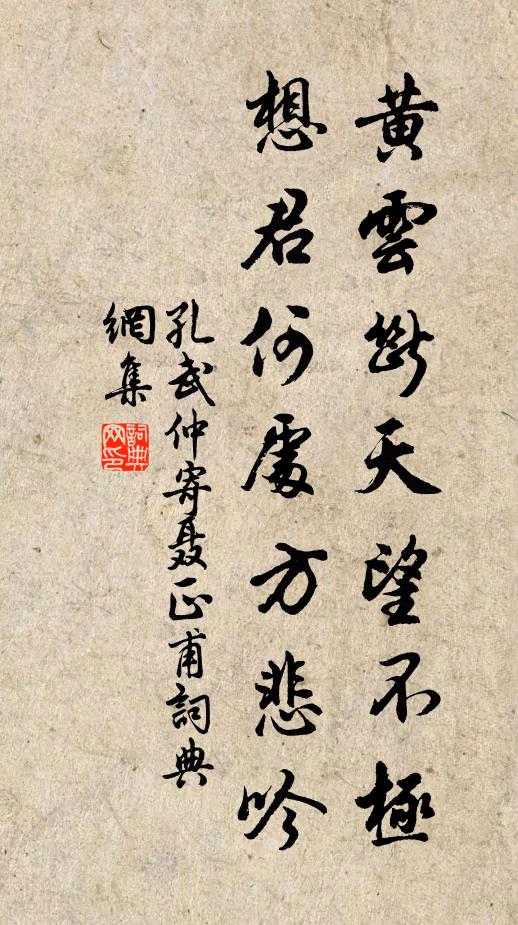 黄雲斷天望不極
想君何處方悲吟
孔武仲寄聂正甫詞典
網集
詞典网印